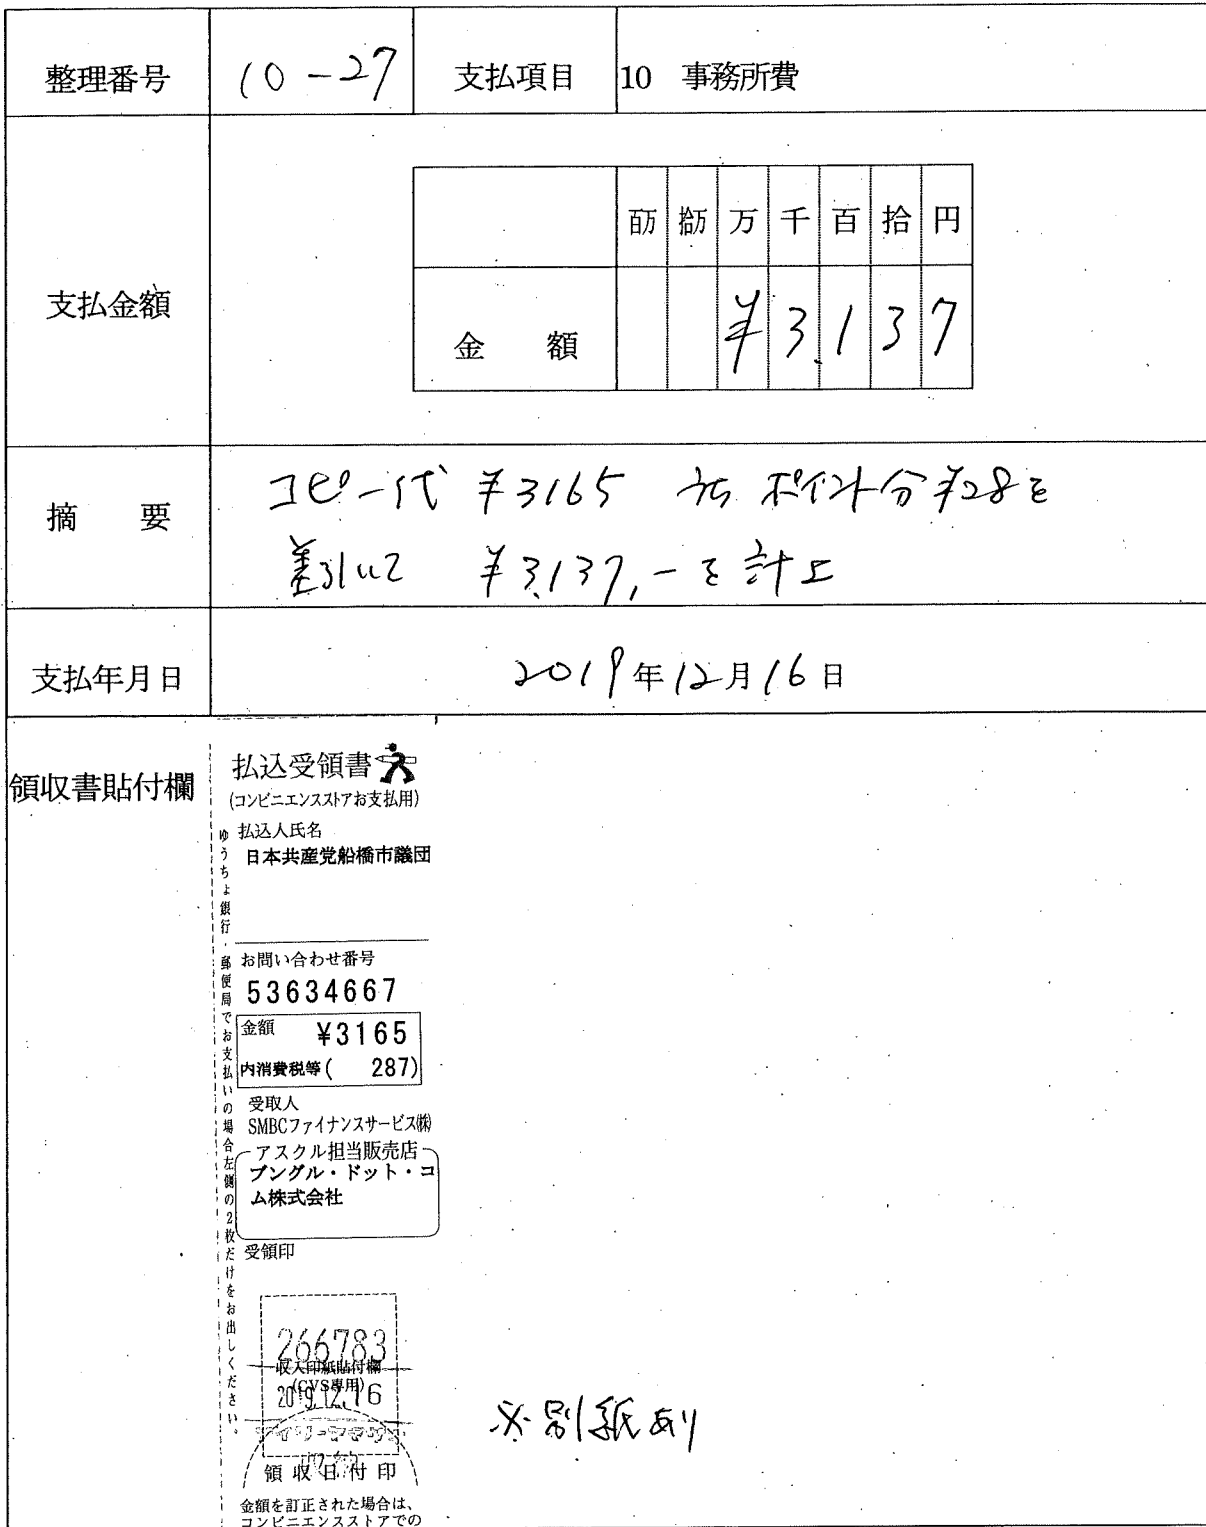 整理番号 10-27 支払項目 10 事務所費
百万 拾万 万 千 百 拾 円
支払金額 金 額 ¥3,137
摘 要 コピー代 ¥3165 うち ポイント分¥28を
差引いて ¥3,137,-を計上
支払年月日 2019年12月16日
領収書貼付欄
払込受領書
(コンビニエンスストアお支払用)
払込人氏名
日本共産党船橋市議団
お問い合わせ番号
53634667
金額 ¥3165
内消費税等( 287)
受取人
SMBCファイナンスサービス㈱
アスクル担当販売店
ブングル・ドット・コ
ム株式会社
受領印
266783
収入印紙貼付欄
(CVS専用)
2019.12.16
領収日付印
金額を訂正された場合は、
コンビニエンスストアでの
ゆうちょ銀行・郵便局でお支払いの場合左側の2枚だけをお出しください。
※別紙あり